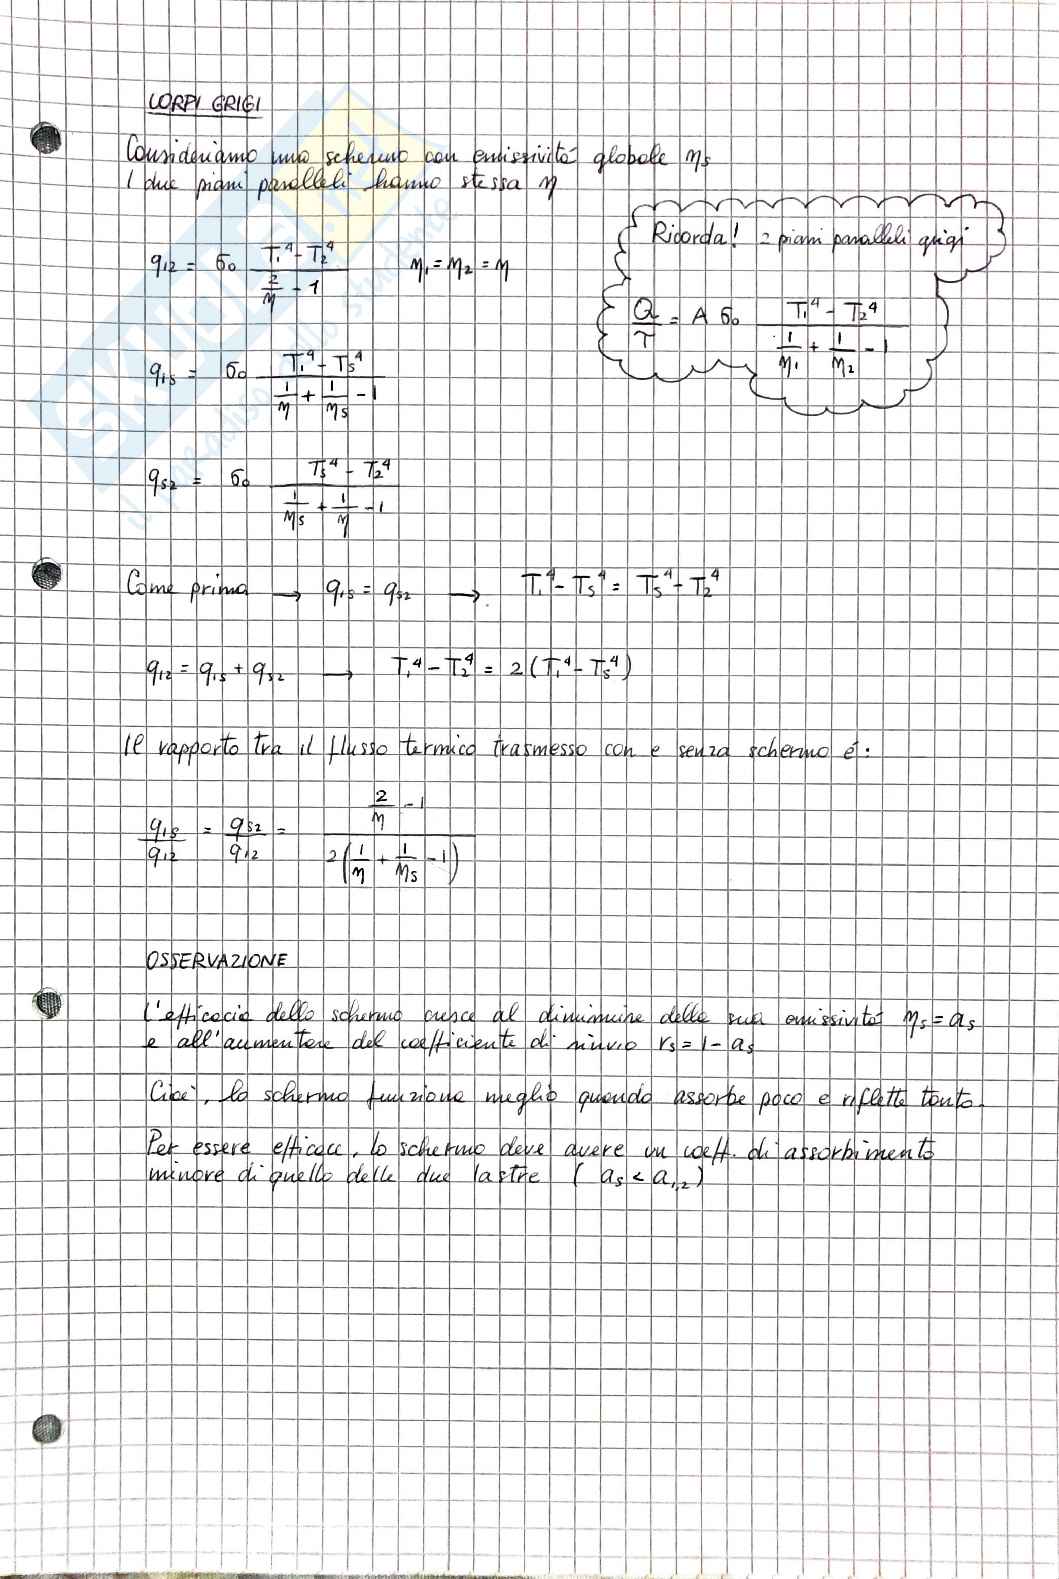 CORPI GRIGI
Consideriamo uno schermo con emissività globale ηs
I due piani paralleli hanno stessa η
Ricorda! 2 piani paralleli grigi
q12 = σ0 (T1^4 - T2^4) / (2/η - 1)    η1 = η2 = η
Q/τ = A σ0 (T1^4 - T2^4) / (1/η1 + 1/η2 - 1)
q1s = σ0 (T1^4 - Ts^4) / (1/η + 1/ηs - 1)
qs2 = σ0 (Ts^4 - T2^4) / (1/ηs + 1/η - 1)
Come prima → q1s = qs2 → T1^4 - Ts^4 = Ts^4 - T2^4
q12 = q1s + qs2 → T1^4 - T2^4 = 2 (T1^4 - Ts^4)
Il rapporto tra il flusso termico trasmesso con e senza schermo é:
q1s/q12 = qs2/q12 = (2/η - 1) / (2 (1/η + 1/ηs - 1))
OSSERVAZIONE
L'efficacia dello schermo cresce al diminuire della sua emissività ηs = as
e all'aumentare del coefficiente di rinvio rs = 1 - as
Cioè, lo schermo funziona meglio quando assorbe poco e riflette tanto.
Per essere efficace, lo schermo deve avere un coeff. di assorbimento
minore di quello delle due lastre ( as < a1,2 )
SKUOLA.net
il paradiso dello studente